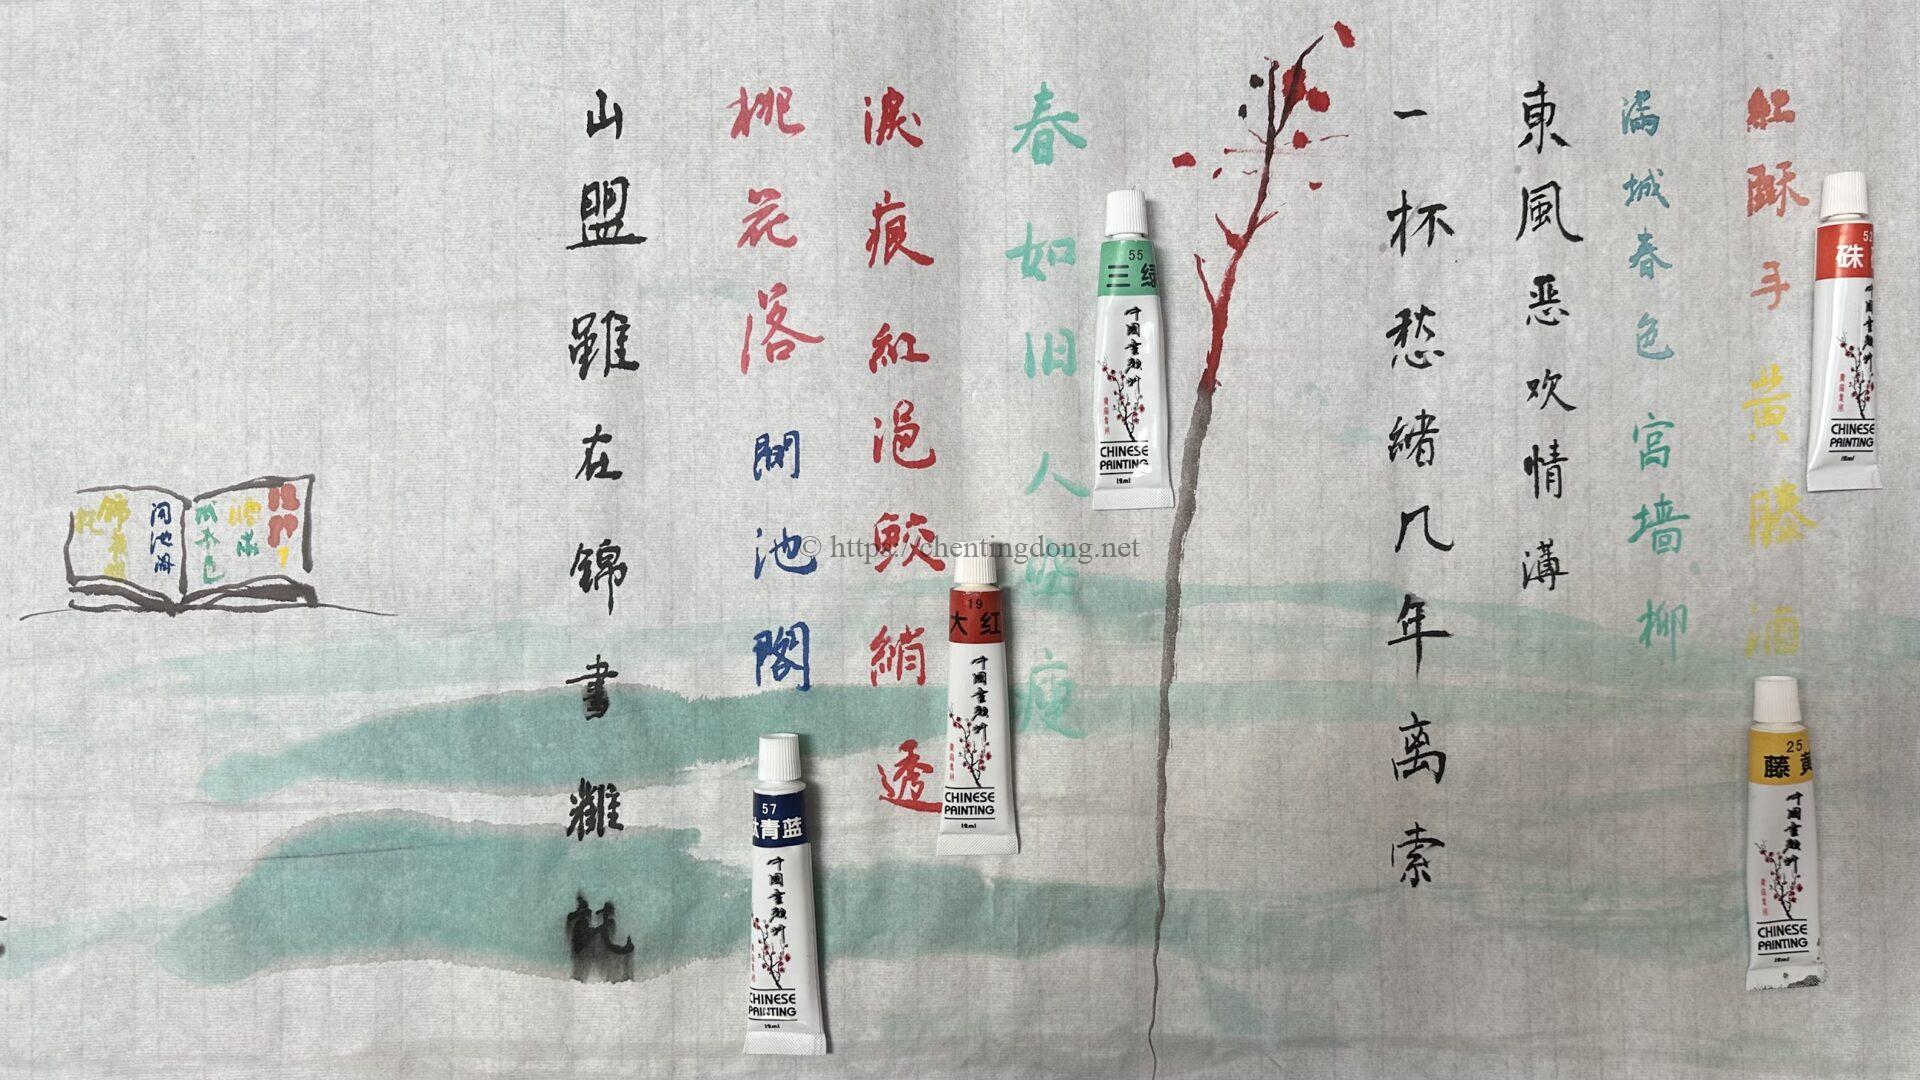 紅酥手黄滕酒
满城春色宫墙柳
東風恶欢情薄
一杯愁緒几年离索
春如旧人空瘦
淚痕紅浥鲛綃透
桃花落閒池閣
山盟雖在錦書難託
硃
中國畫顏料
CHINESE
PAINTING
12ml
25
藤黄
中國畫顏料
CHINESE
PAINTING
12ml
55
三绿
中國畫顏料
CHINESE
PAINTING
12ml
19
大红
中國畫顏料
CHINESE
PAINTING
12ml
57
青蓝
中國畫顏料
CHINESE
PAINTING
12ml
© https://chentingdong.net